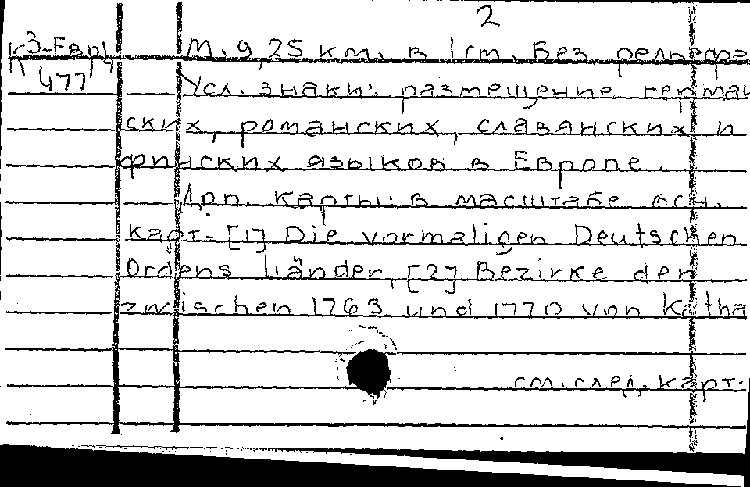 2
К 3-Евр/477
М. 9,25 км. в 1 см. Без рельефа
Усл. знаки: размещение герман
ских, романских, славянских и
финских языков в Европе.
Доп. карты: в масштабе осн.
карт.- [1] Die vormaligen Deutschen
Ordens länder, [2] Bezirke der
zwischen 1763 und 1770 von Katha
см. след. карт.